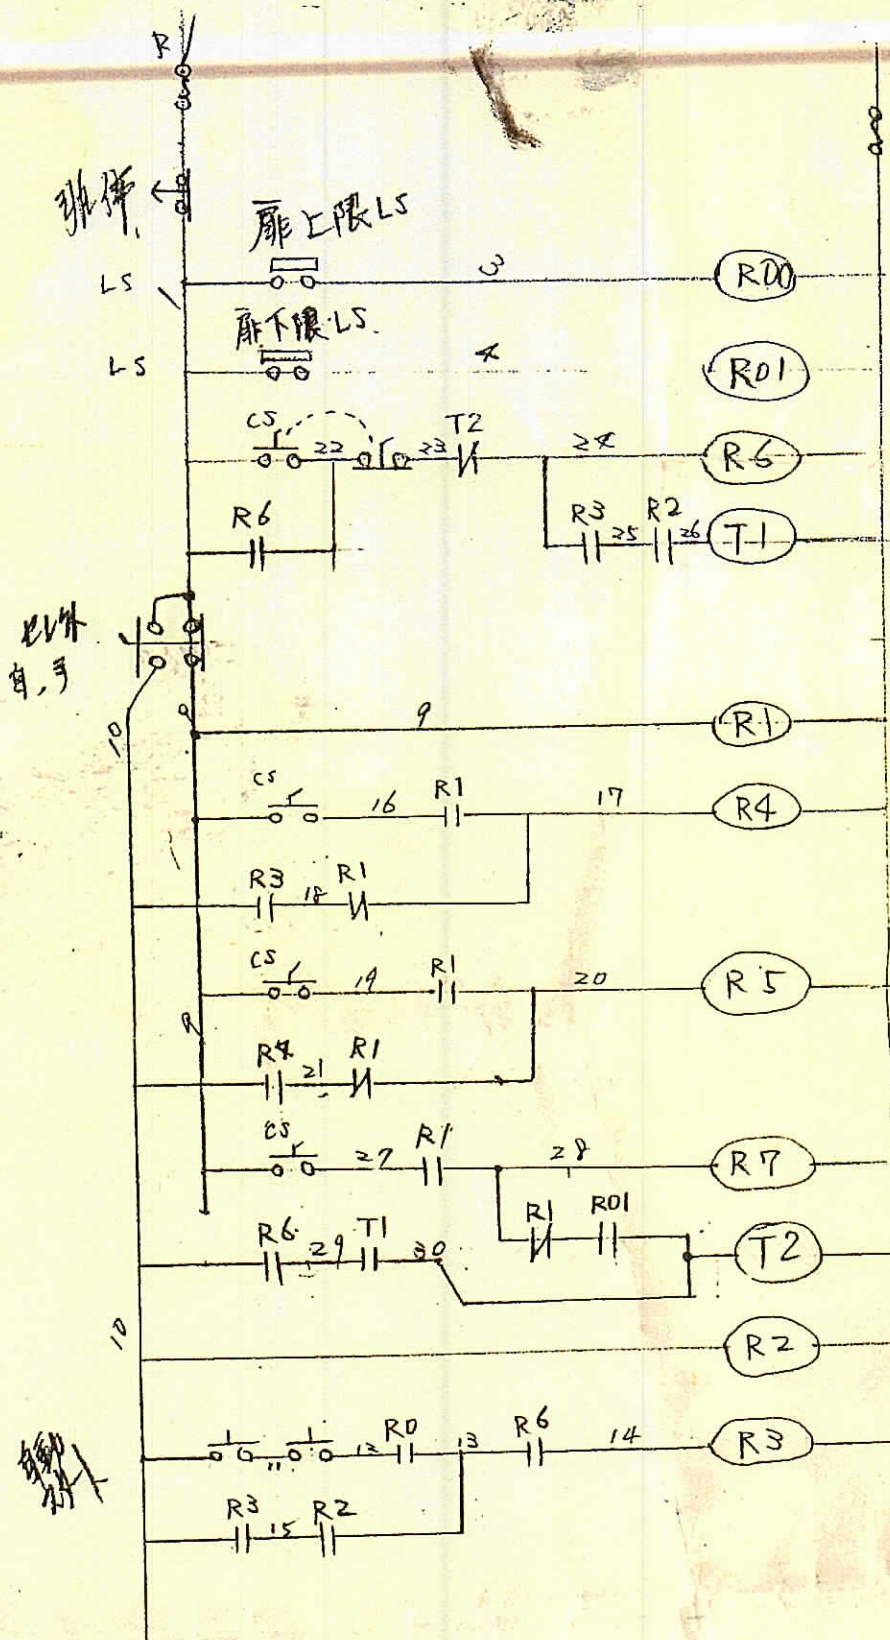 R
非停
扉上限LS
LS 3 R00
扉下限LS
LS 4 R01
CS 22 23 T2 24 R6
R6 R3 25 R2 26 T1
セレクト
自、手
10 9 R1
CS 16 R1 17 R4
R3 18 R1
CS 19 R1 20 R5
R
R4 21 R1
CS 27 R1 28 R7
R1 R01
R6 29 T1 30 T2
10 R2
11 12 R0 13 R6 14 R3
R3 15 R2